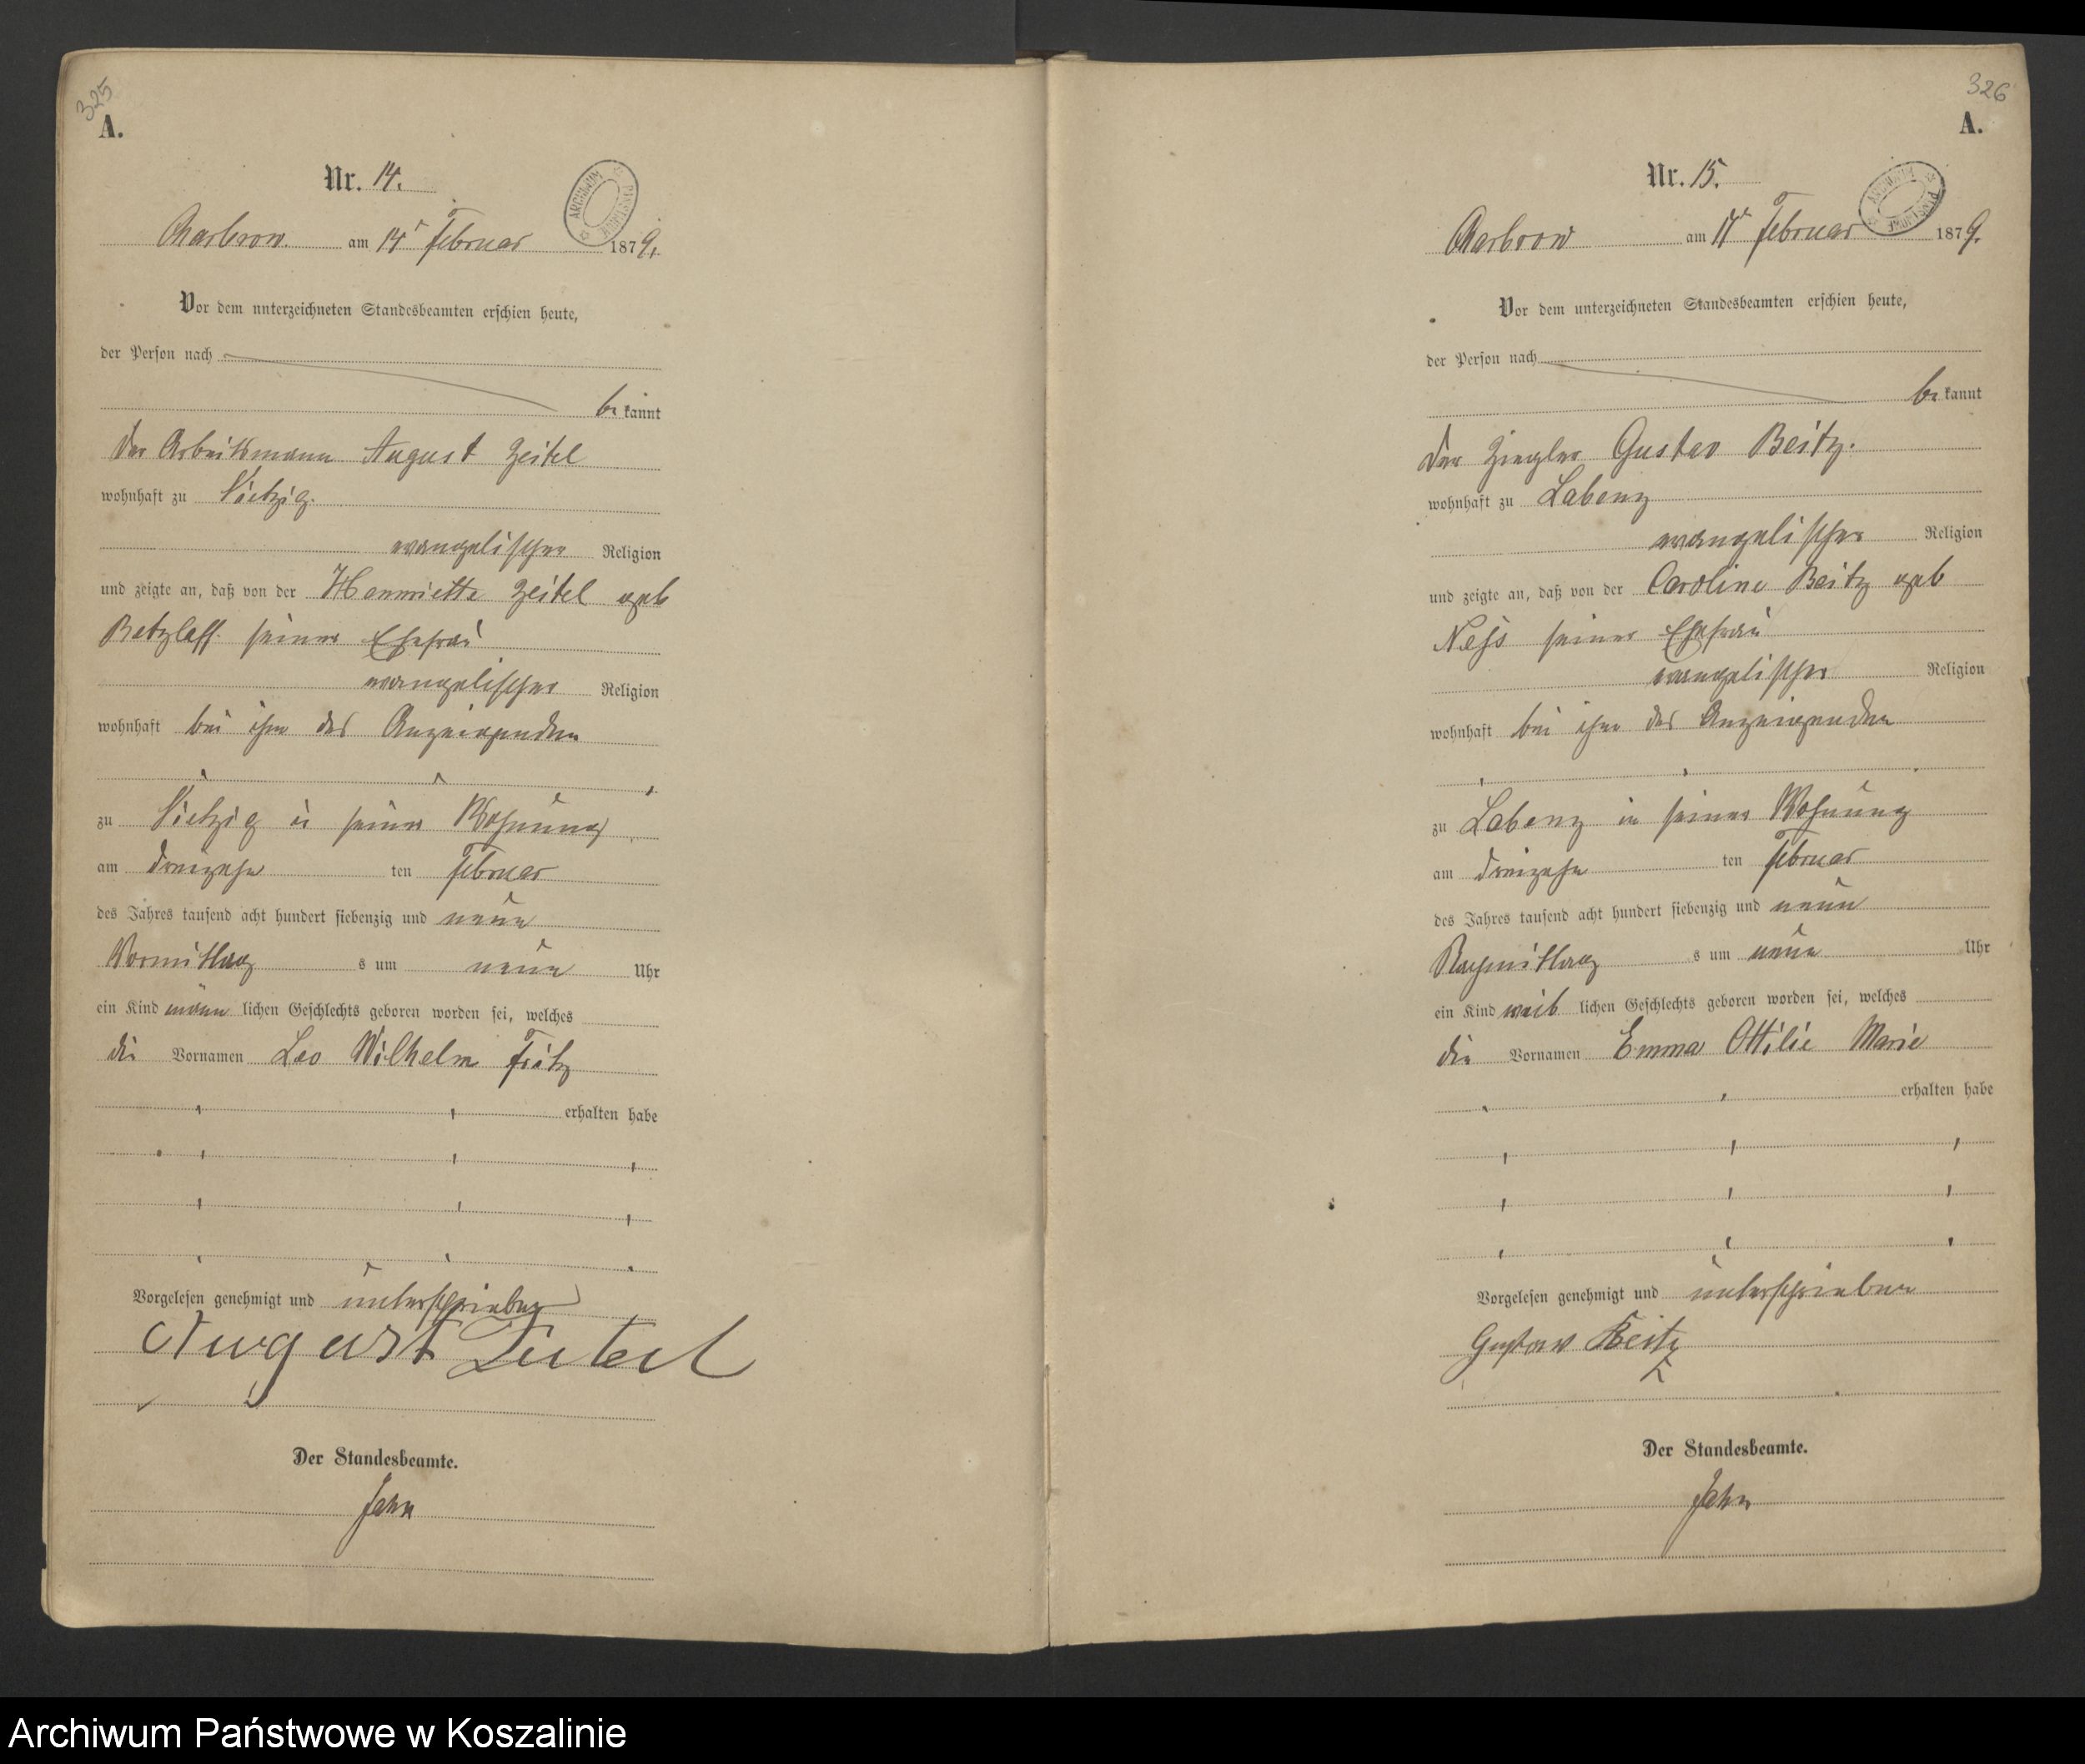 325
A.
Nr. 14.
ARCHIWUM PAŃSTWOWE
Charbrow am 14t Februar 1879.
Vor dem unterzeichneten Standesbeamten erschien heute,
der Person nach
be kannt
der Arbeitsmann August Zeitel
wohnhaft zu Vietzig.
evangelischer Religion
und zeigte an, daß von der Henriette Zeitel geb
Retzlaff seiner Ehefrau
evangelischer Religion
wohnhaft bei ihm dem Anzeigenden
zu Vietzig in seiner Wohnung
am dreizehn ten Februar
des Jahres tausend acht hundert siebenzig und neun
Vormittag s um neun Uhr
ein Kind männ lichen Geschlechts geboren worden sei, welches
die Vornamen Leo Wilhelm Fritz
erhalten habe
Vorgelesen genehmigt und unterschrieben
August
Der Standesbeamte.
Jahn
326
A.
Nr. 15.
ARCHIWUM PAŃSTWOWE
Charbrow am 14t Februar 1879.
Vor dem unterzeichneten Standesbeamten erschien heute,
der Person nach
be kannt
der Ziegler Gustav Beitz.
wohnhaft zu Labenz
evangelischer Religion
und zeigte an, daß von der Caroline Beitz geb
Neß seiner Ehefrau
evangelischer Religion
wohnhaft bei ihm dem Anzeigenden
zu Labenz in seiner Wohnung
am dreizehn ten Februar
des Jahres tausend acht hundert siebenzig und neun
Nachmittag s um neun Uhr
ein Kind weib lichen Geschlechts geboren worden sei, welches
die Vornamen Emma Ottilie Marie
erhalten habe
Vorgelesen genehmigt und unterschrieben
Gustaw Beitz
Der Standesbeamte.
Jahn
Archiwum Państwowe w Koszalinie